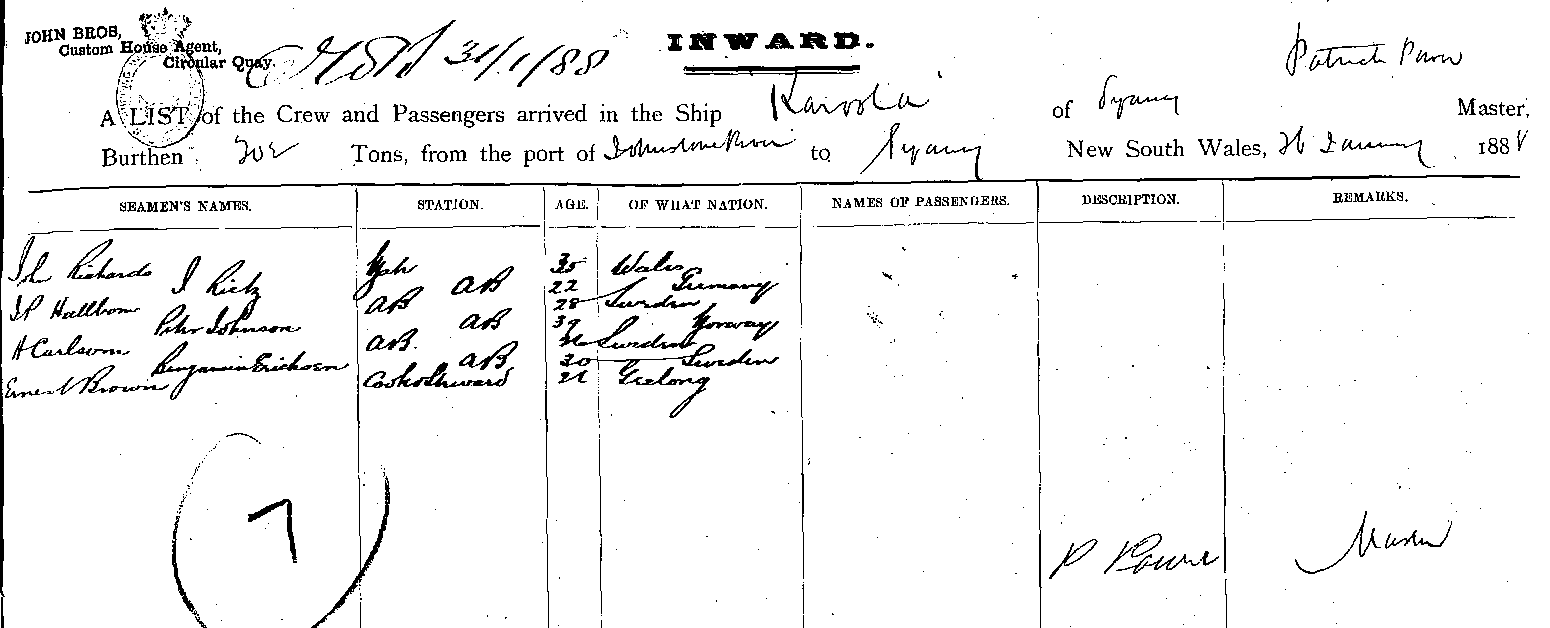 JOHN BROS,
Custom House Agent,
Circular Quay.
31/1/88
INWARD.
Patrick Power
A LIST of the Crew and Passengers arrived in the Ship Karoola of Sydney Master,
Burthen 302 Tons, from the port of Johnstone River to Sydney New South Wales, 26 January 1888
SEAMEN'S NAMES. STATION. AGE. OF WHAT NATION. NAMES OF PASSENGERS. DESCRIPTION. REMARKS.
John Richards Mate 35 Wales
J Rietz AB 22 Germany
J P Hallbom AB 28 Sweden
Peter Johnson AB 39 Norway
A Carlsom AB. Sweden
Benjamin Erickson AB 30 Sweden
Ernest Brown Cook & Steward 21 Geelong
7
P Power Master